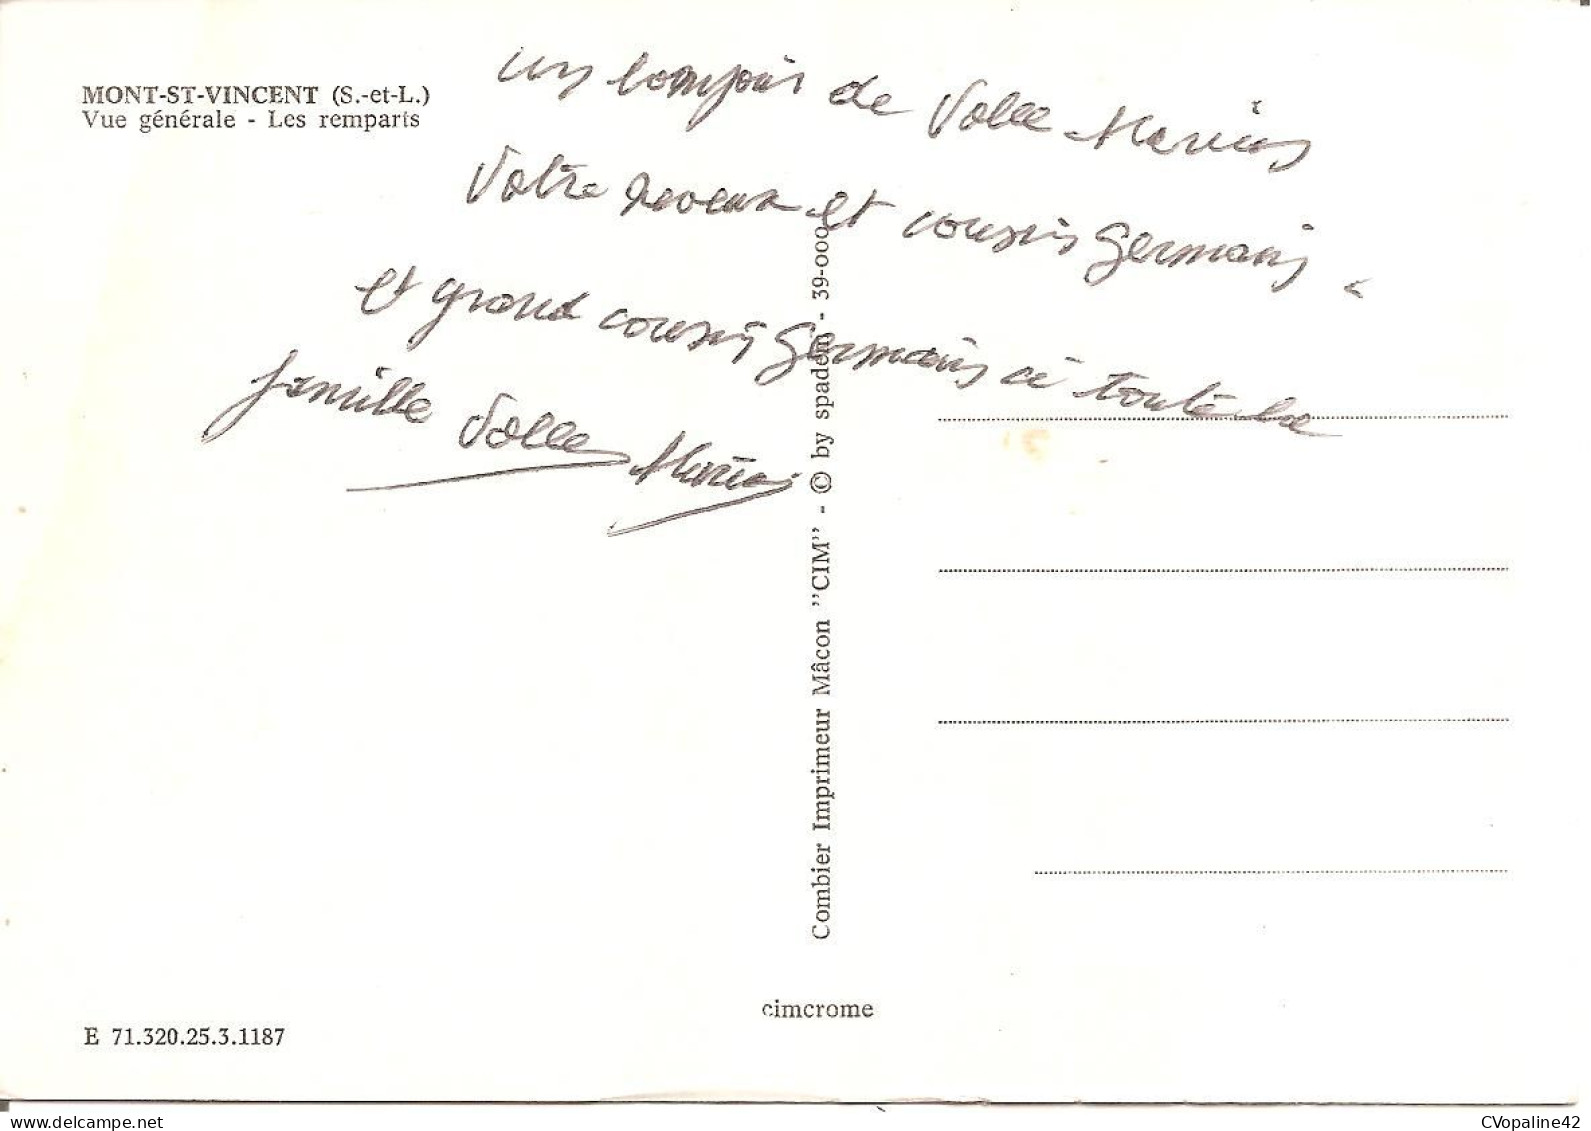 MONT-ST-VINCENT (S.-et-L.)
Vue générale - Les remparts
un bonjour de Volle Marius
Votre neveux et cousin Germain,
et grand cousin Germain a toute la
famille Volle Marius
Combier Imprimeur Mâcon "CIM" - © by spadem - 39-000
cimcrome
E 71.320.25.3.1187
CVopaline42